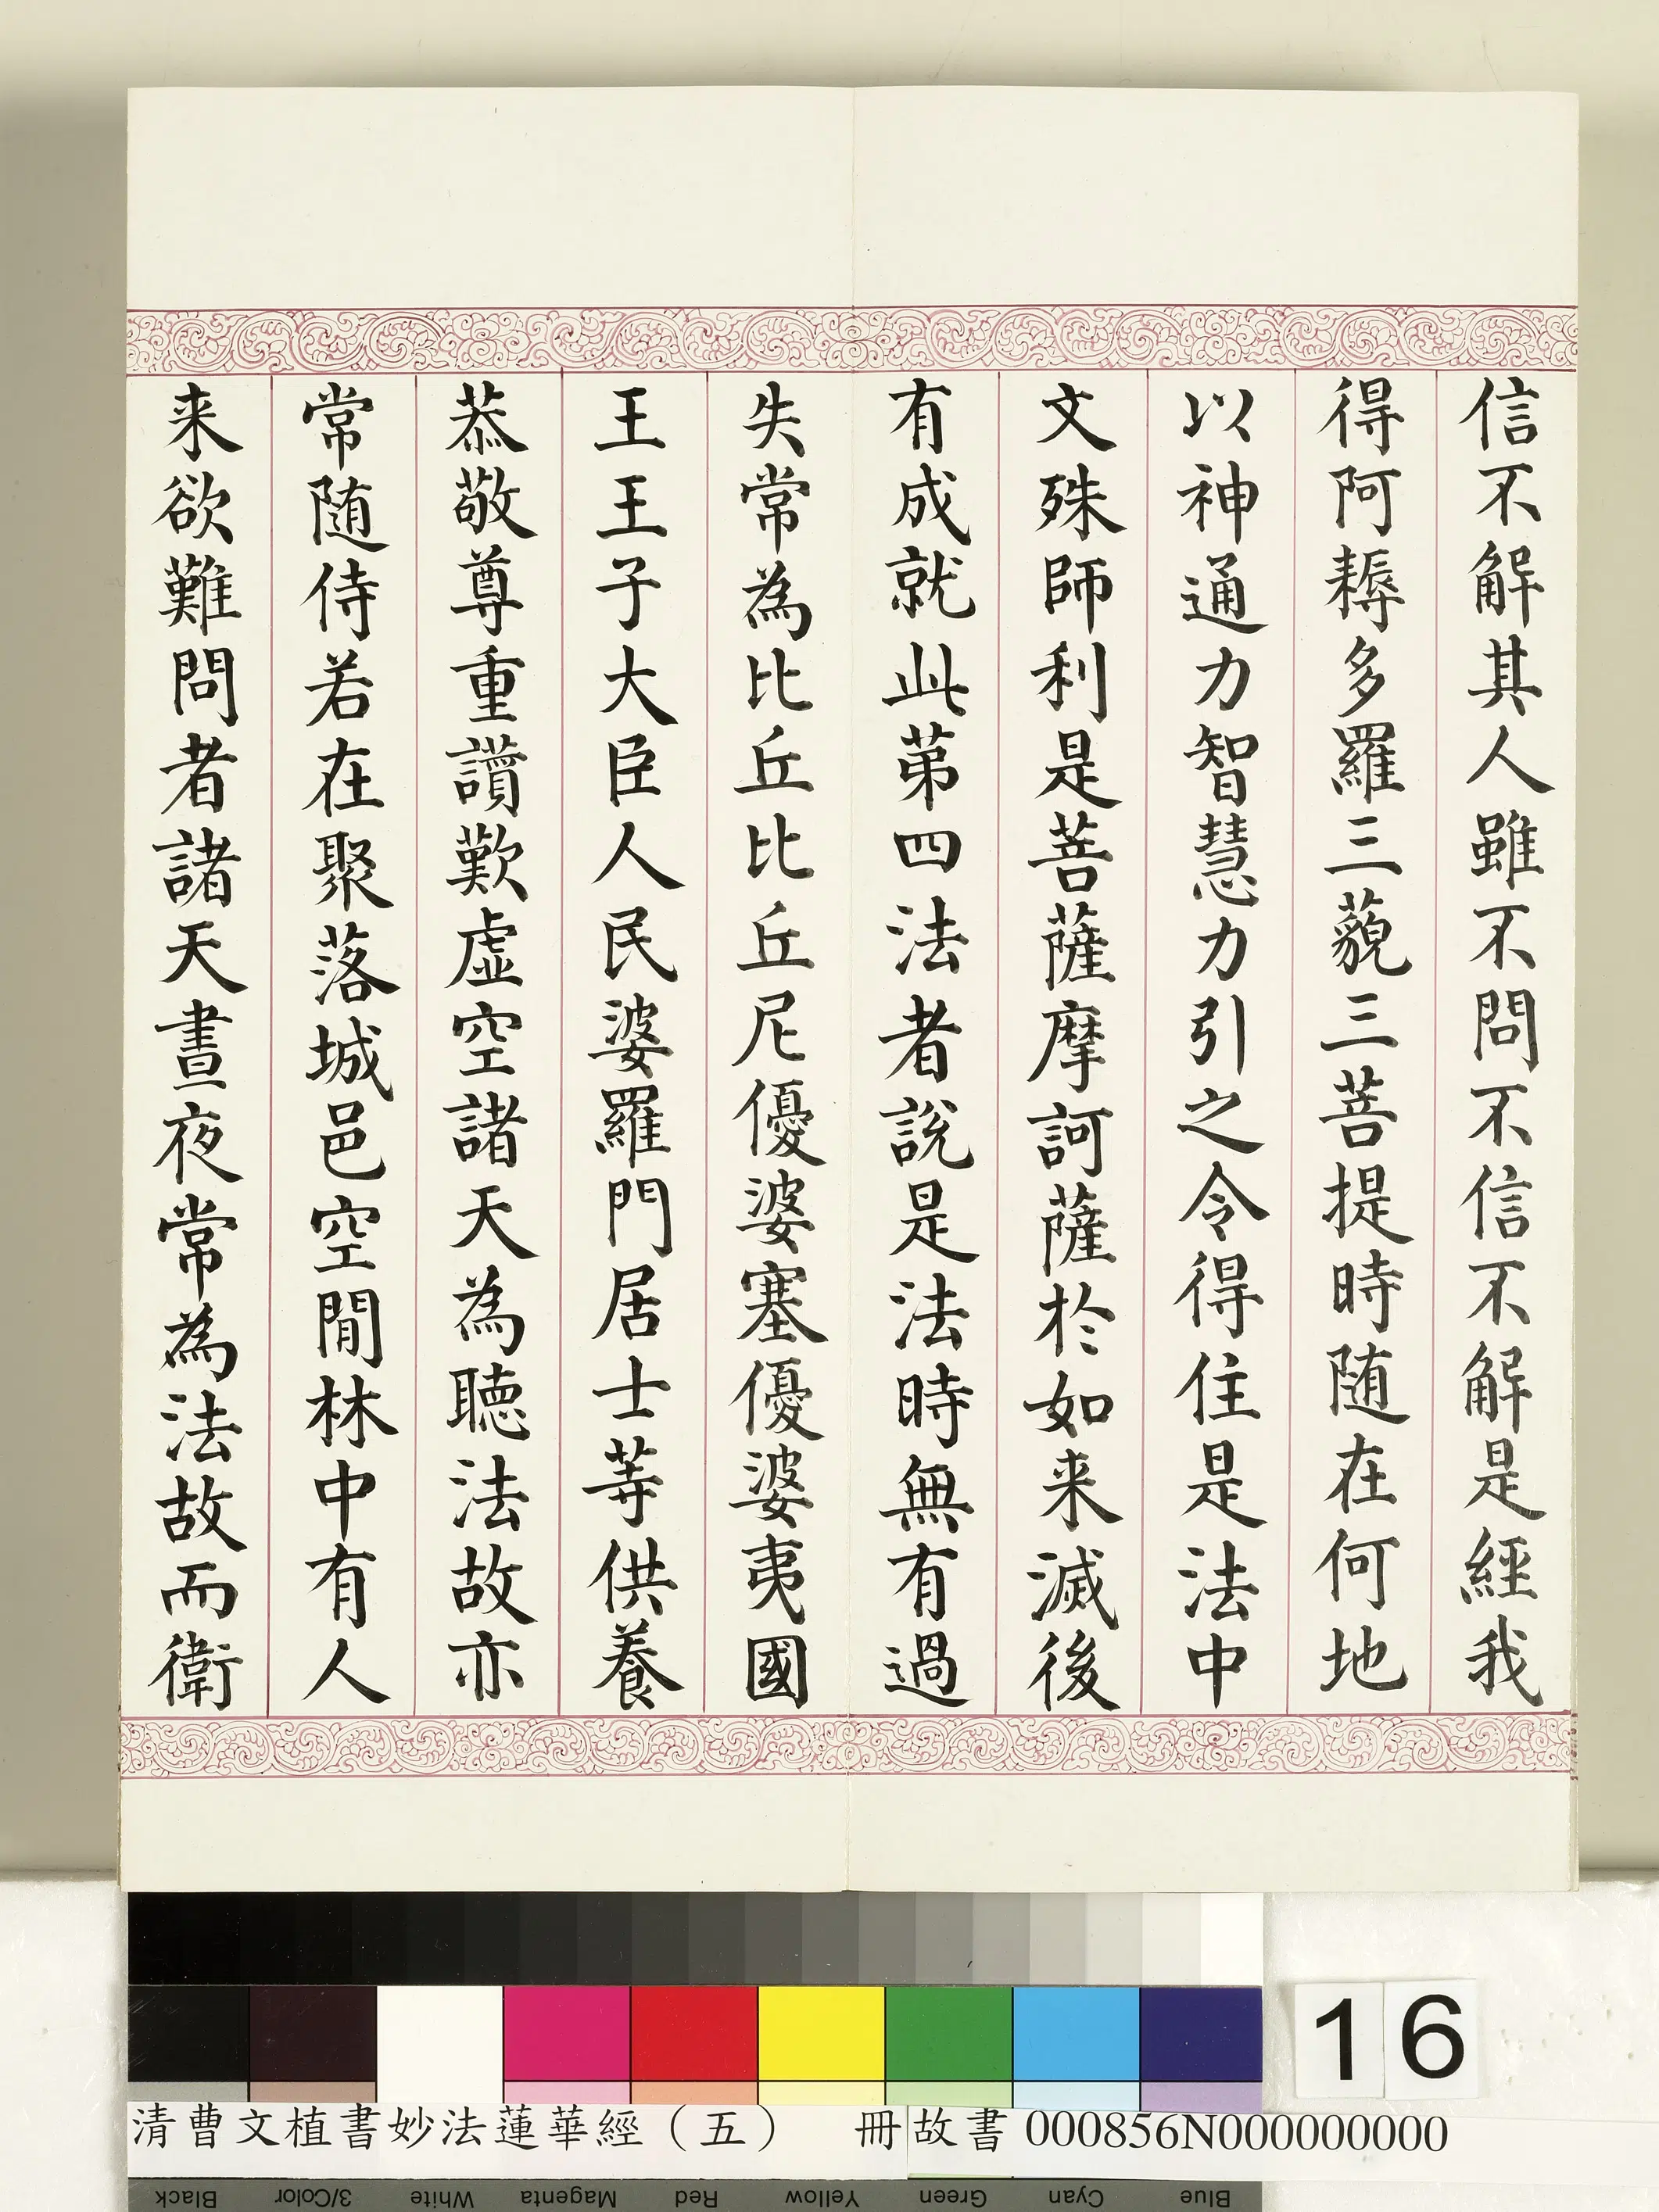 信不解其人雖不問不信不解是經我
得阿耨多羅三藐三菩提時随在何地
以神通力智慧力引之令得住是法中
文殊師利是菩薩摩訶薩於如来滅後
有成就此苐四法者說是法時無有過
失常為比丘比丘尼優婆塞優婆夷國
王王子大臣人民婆羅門居士等供養
恭敬尊重讃歎虛空諸天為聴法故亦
常随侍若在聚落城邑空閒林中有人
来欲難問者諸天晝夜常為法故而衛
16
清曹文植書妙法蓮華經（五） 冊 故書 000856N000000000
Black 3/Color White Magenta Red Yellow Green Cyan Blue